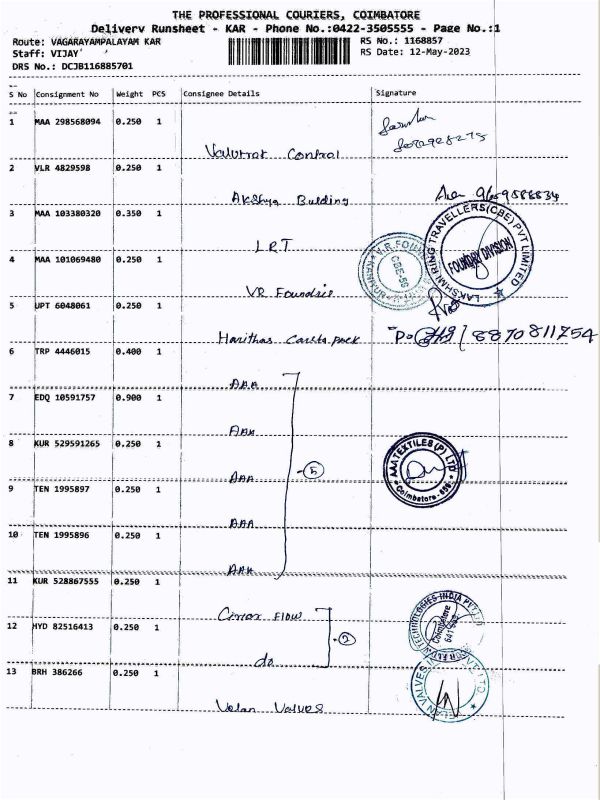 THE PROFESSIONAL COURIERS, COIMBATORE
Delivery Runsheet - KAR - Phone No.:0422-3505555 - Page No.:1
Route: VAGARAYAMPALAYAM KAR
RS No.: 1168857
Staff: VIJAY
RS Date: 12-May-2023
DRS No.: DCJB116885701
S No Consignment No Weight PCS Consignee Details Signature
1 MAA 298568094 0.250 1
Control
2 VLR 4829598 0.250 1
Akshya Building
3 MAA 103380320 0.350 1
L.R.T
LAKSHMI RING TRAVELLERS(CBE) PVT LIMITED
FOUNDRY DIVISION
4 MAA 101069480 0.250 1
V.R.FOUN
CBE-59
VR Foundris
5 UPT 6048061 0.250 1
Harithas
8870811754
6 TRP 4446015 0.400 1
AAA
7 EDQ 10591757 0.900 1
AAA
8 KUR 529591265 0.250 1
AAA
5
AAA TEXTILES (P) LTD
Coimbatore
9 TEN 1995897 0.250 1
AAA
10 TEN 1995896 0.250 1
AAA
11 KUR 528867555 0.250 1
Flow
TECHNOLOGIES INDIA PVT LTD
Coimbatore
12 HYD 82516413 0.250 1
2
do
13 BRH 386266 0.250 1
Velan Valves